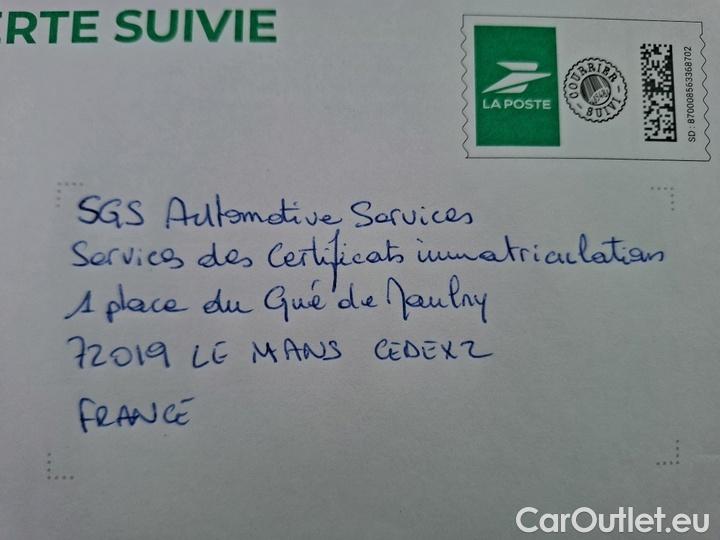 ERTE SUIVIE
LA POSTE
COURRIER SUIVI
SD : 870008563368702
SGS Automotive Services
Services des Certificats immatriculation
1 place du Gué de Maulny
72019 LE MANS CEDEX2
FRANCE
CarOutlet.eu